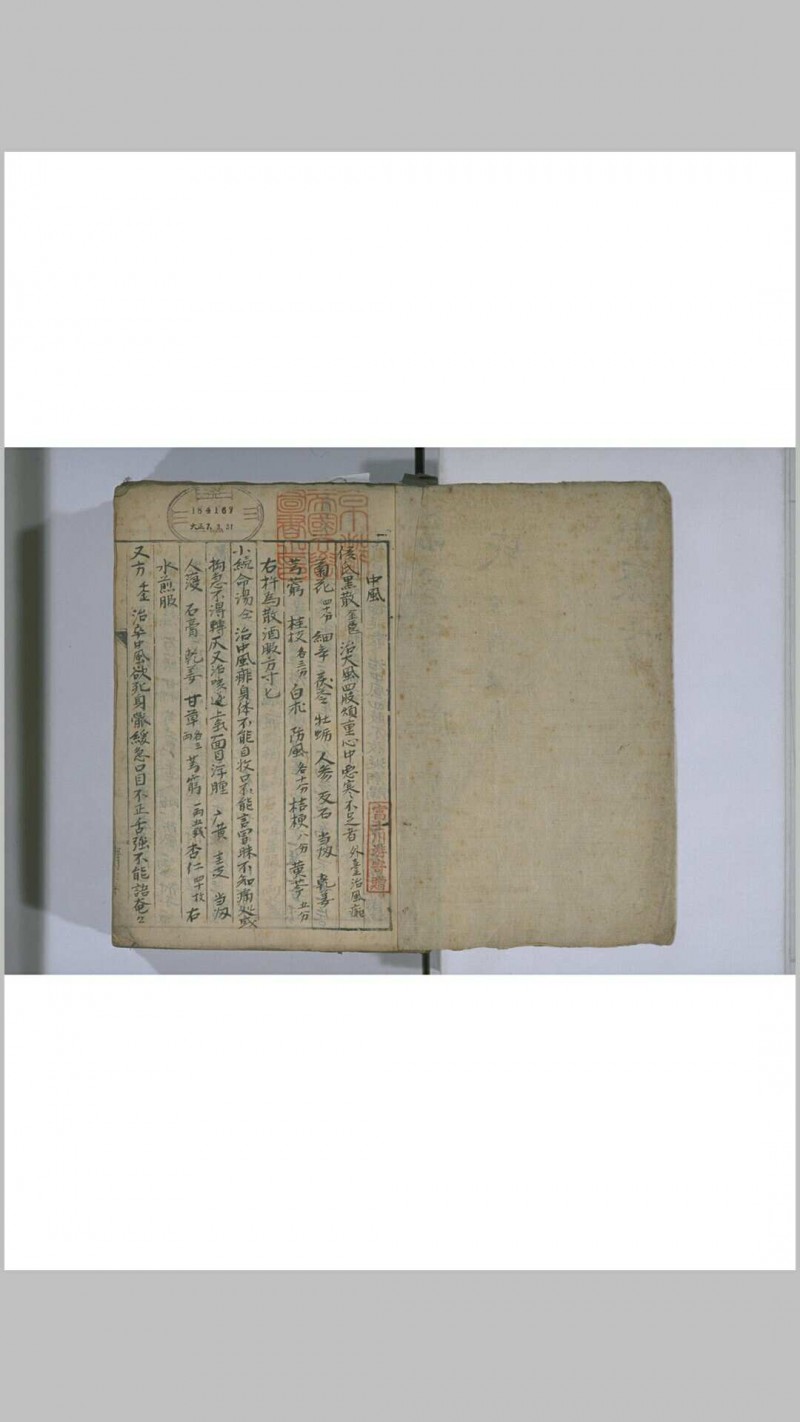 中風
侯氏黑散 治大風四肢煩重心中惡寒不足者 外臺治風癲
菊花 四十分 細辛 茯苓 牡蛎 人參 礬石 當歸 乾姜
芎窮 桂枝 各三分 白朮 防風 各十分 桔梗 八分 黄芩 五分
右杵為散酒服方寸匕
小續命湯 治中風痱身体不能自收口不能言冒昧不知痛处或
拘急不得轉仄又治咳逆上氣面目浮腫 麻黄 桂枝 當歸
人葠 石膏 乾姜 甘草 各三兩 芎窮 一兩五戔 杏仁 四十枚 右
水煎服
又方 治卒中風欲死身體緩急口目不正舌強不能語奄々
184167
大正7.3.31
京都帝國大學圖書之印
富士川游寄贈